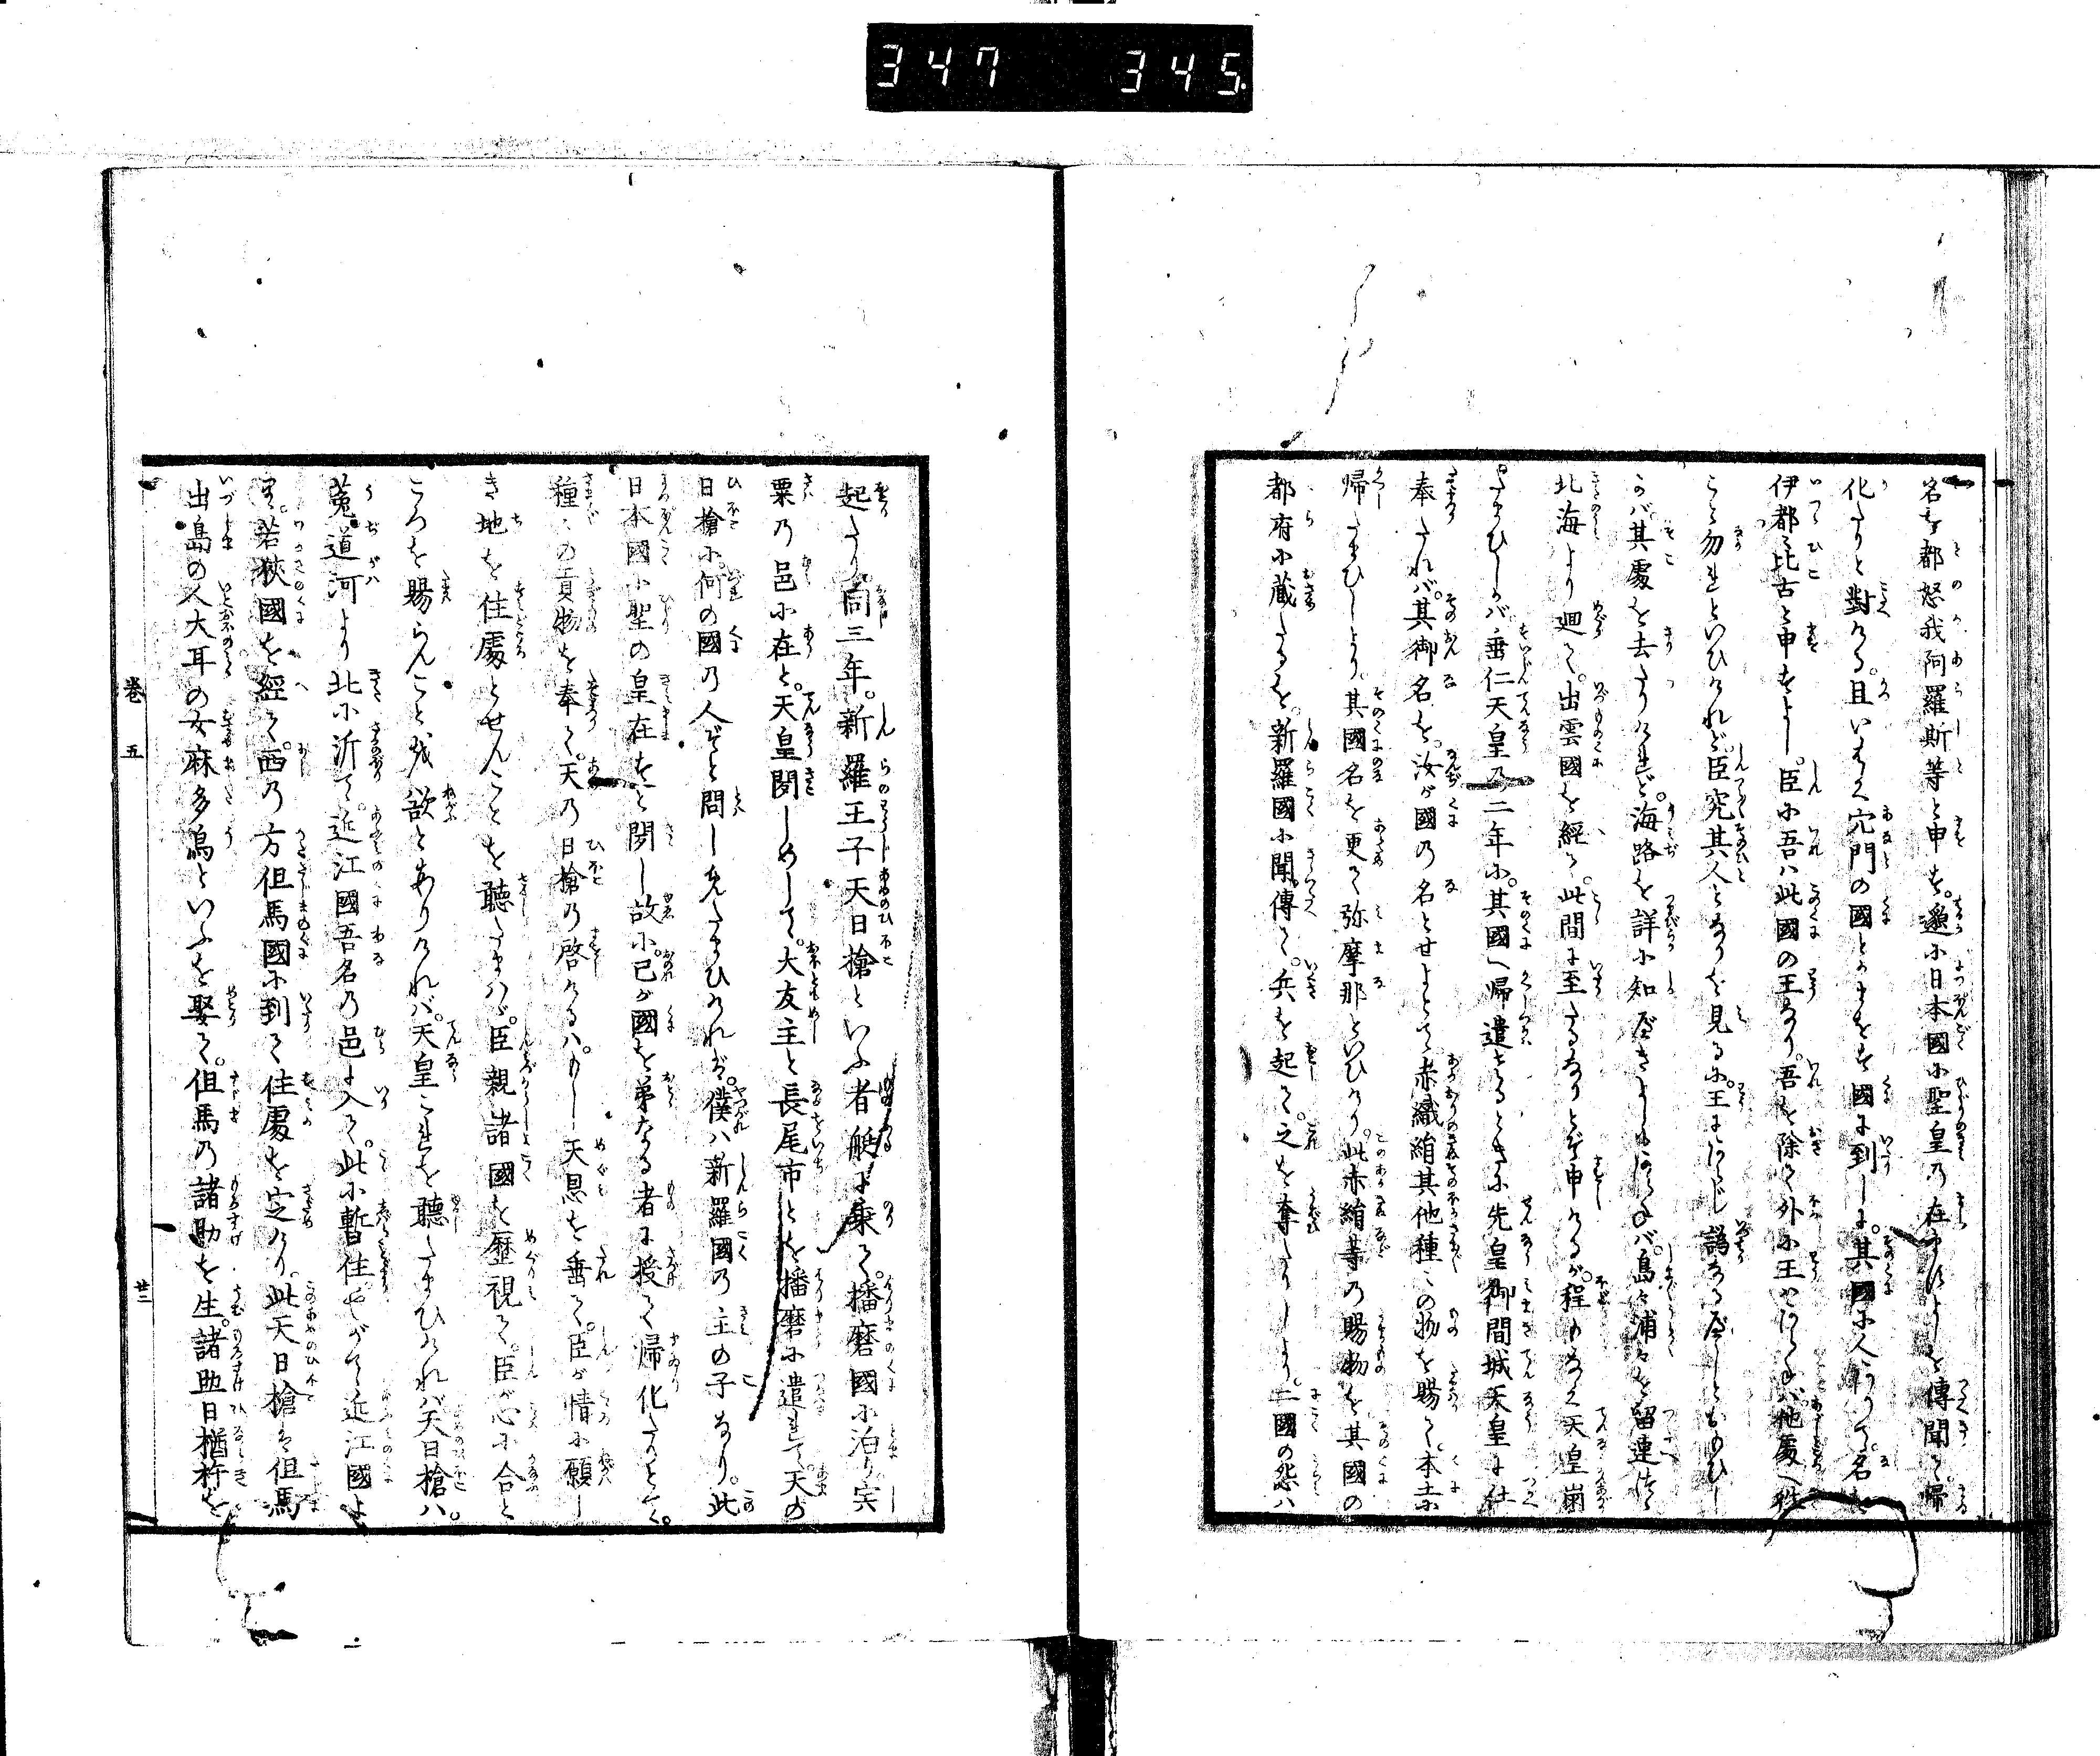 347 345
名を都怒我阿羅斯等と申す。遥に日本國に聖皇の在ますよしを傳聞て。歸
化たりと對ける。且いはく穴門の國とかまをす國に到しに。其國に人ありて。名を
伊都々比古と申すよし。臣に吾ハ此國の王なり。吾を除く外に王とあらねバ。他處へ往
こと勿れといひけれど。臣究其人となりを見るに。王にハあらじ。譌なる居しとおもひし
かバ。其處を去りけれど。海路を詳に知居きよしにあらねバ。島々浦々を留連つゝ
北海より廻て。出雲國を經て。此間に至たるなりとぞ申ける。が程もなく天皇崩
たまひしかバ。垂仁天皇の二年に。其國へ歸遣さるときに先皇御間城天皇に仕
奉されバ。其御名を。汝が國の名とせよとて。赤織絹其他種々の物を賜て。本土
歸たまひしより。其國名を更て弥摩那といひけり。此赤絹等の賜物を其國の
都府に蔵たるを。新羅國に聞傳て。兵を起て。之を奪たりしより。二國の怨ハ
起たり。同三年。新羅王子天日槍といふ者艇に乗て。播磨國に泊り宍
粟の邑に在と。天皇聞しめして。大友主と長尾市とを播磨に遣れて。天の
日槍に何の國の人ぞと問しめたまひけれバ。僕ハ新羅國の主の子なり。此
日本國に聖の皇在すと聞し故に。己が國を弟なる者に授て歸化たりとて。
種々の貢物を奉て。天の日槍の啓けるハ。もし天恩を垂て。臣が情に願し
き地を住處とせんことを聽たまハゞ。臣親諸國を歴視て。臣が心に合と
ころを賜らんことを欲とありけれバ。天皇これを聽たまひけれバ天日槍ハ。
菟道河より北に泝て。近江國吾名の邑に入て。此に暫住やがて近江國よ
り。若狹國を經て。西の方但馬國に到て住處を定けり。此天日槍を但馬
出島の人大耳の女麻多烏といふを娶て。但馬の諸助を生。諸助日楢杵を
巻五 廿二